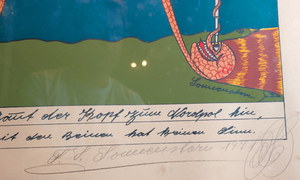 Sonnenstern
der Kopf zum Nordpol hin,
it den Beinen hat keinen Sinn.
S. Sonnenstern